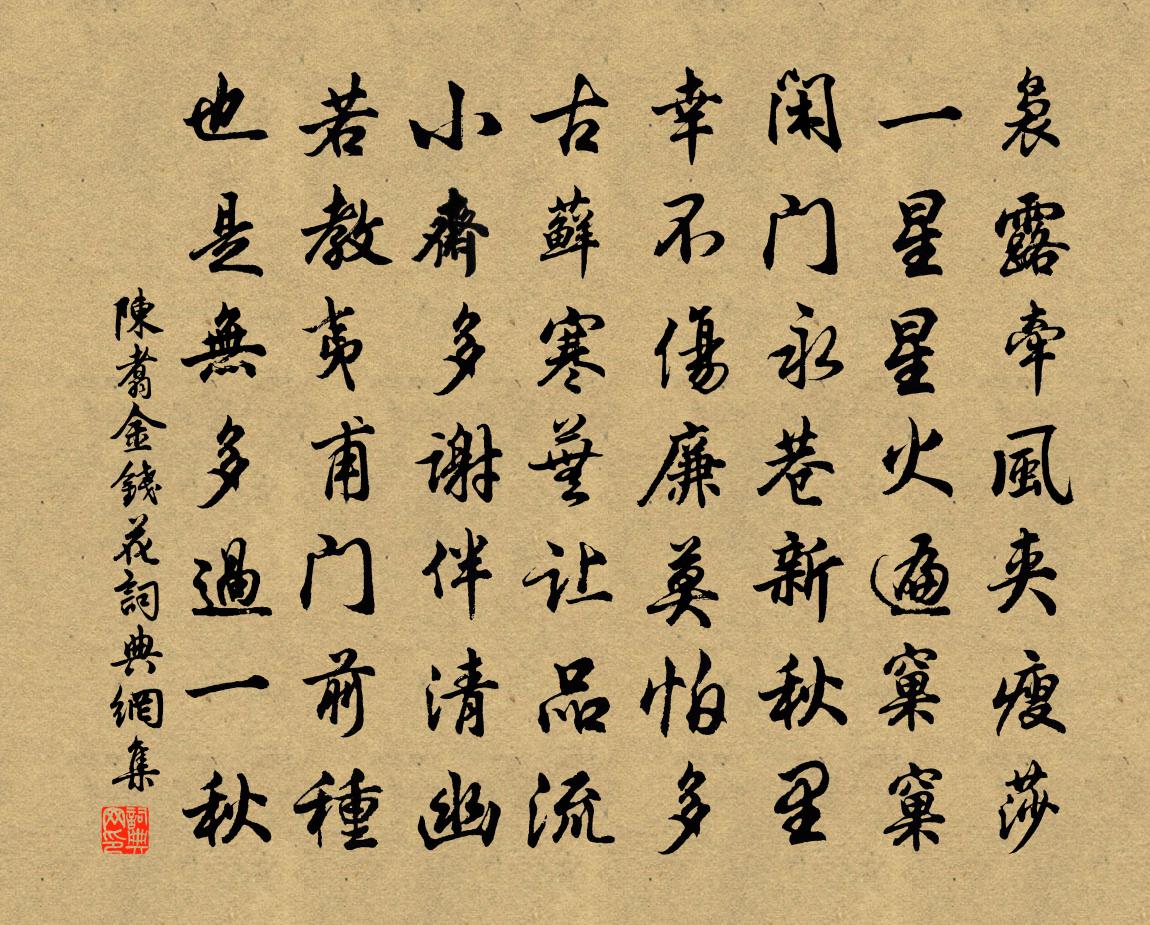 裊露牽風夾瘦莎
一星星火遍窠窠
閑門永巷新秋里
幸不傷廉莫怕多
古蘚寒蕪让品流
小齋多謝伴清幽
若教夷甫門前種
也是無多過一秋
陳翥金錢花詞典網集
詞典网印